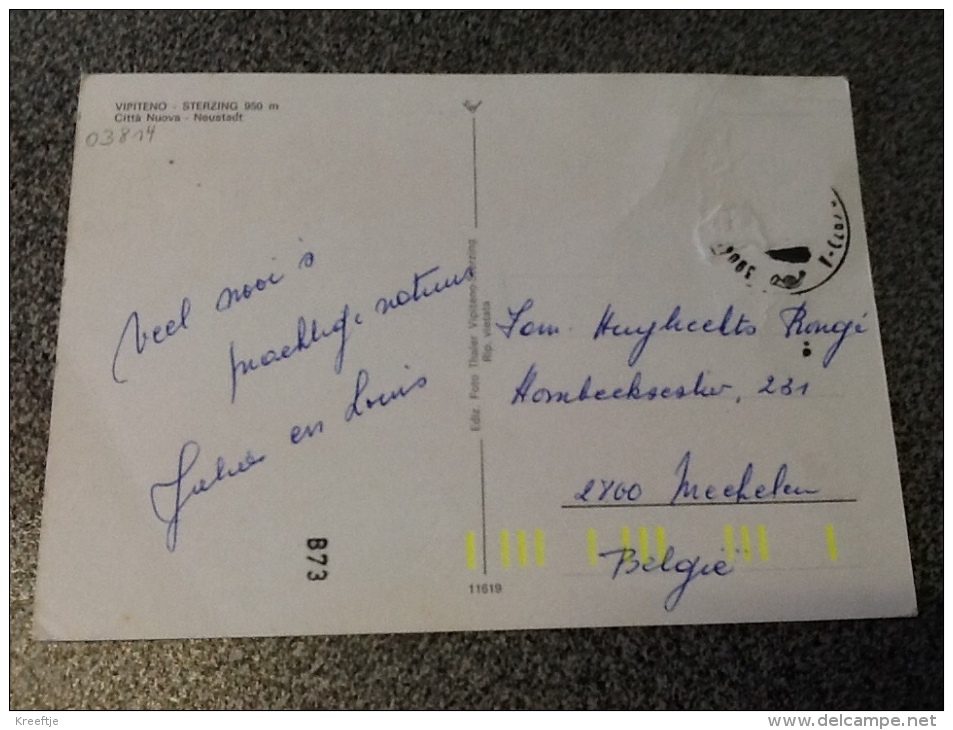 VIPITENO - STERZING 950 m
Città Nuova - Neustadt
03814
Veel mooi's
prachtige natuur
en Louis
B73
Ediz. Foto Thaler Vipiteno-Sterzing
Rip. vietata
11619
Fam. Huyghelts Rongé
Hombeeksestw, 231
2800 Mechelen
België
Kreeftje
www.delcampe.net